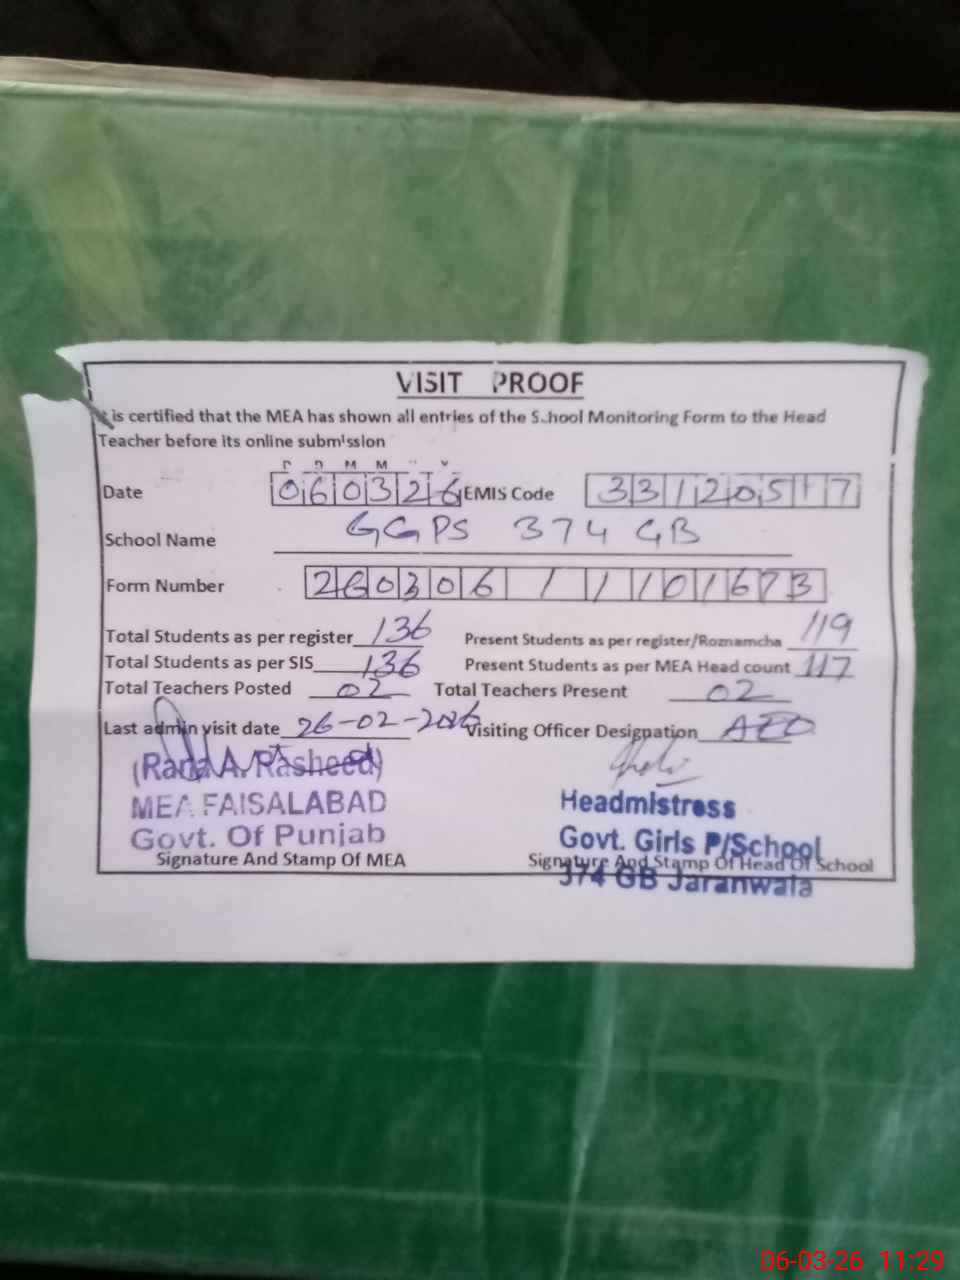 VISIT PROOF
It is certified that the MEA has shown all entries of the School Monitoring Form to the Head
Teacher before its online submission
D D M M Y Y
Date 060326 EMIS Code 33120517
School Name GGPS 374 GB
Form Number 260306 / / 101673
Total Students as per register 136 Present Students as per register/Roznamcha 119
Total Students as per SIS 136 Present Students as per MEA Head count 117
Total Teachers Posted 02 Total Teachers Present 02
Last admin visit date 26-02-2026 Visiting Officer Designation AEO
(Rana A. Rasheed)
MEA FAISALABAD
Govt. Of Punjab
Signature And Stamp Of MEA
Headmistress
Govt. Girls P/School
Signature And Stamp Of Head Of School
374 GB Jaranwala
06-03-26 11:29